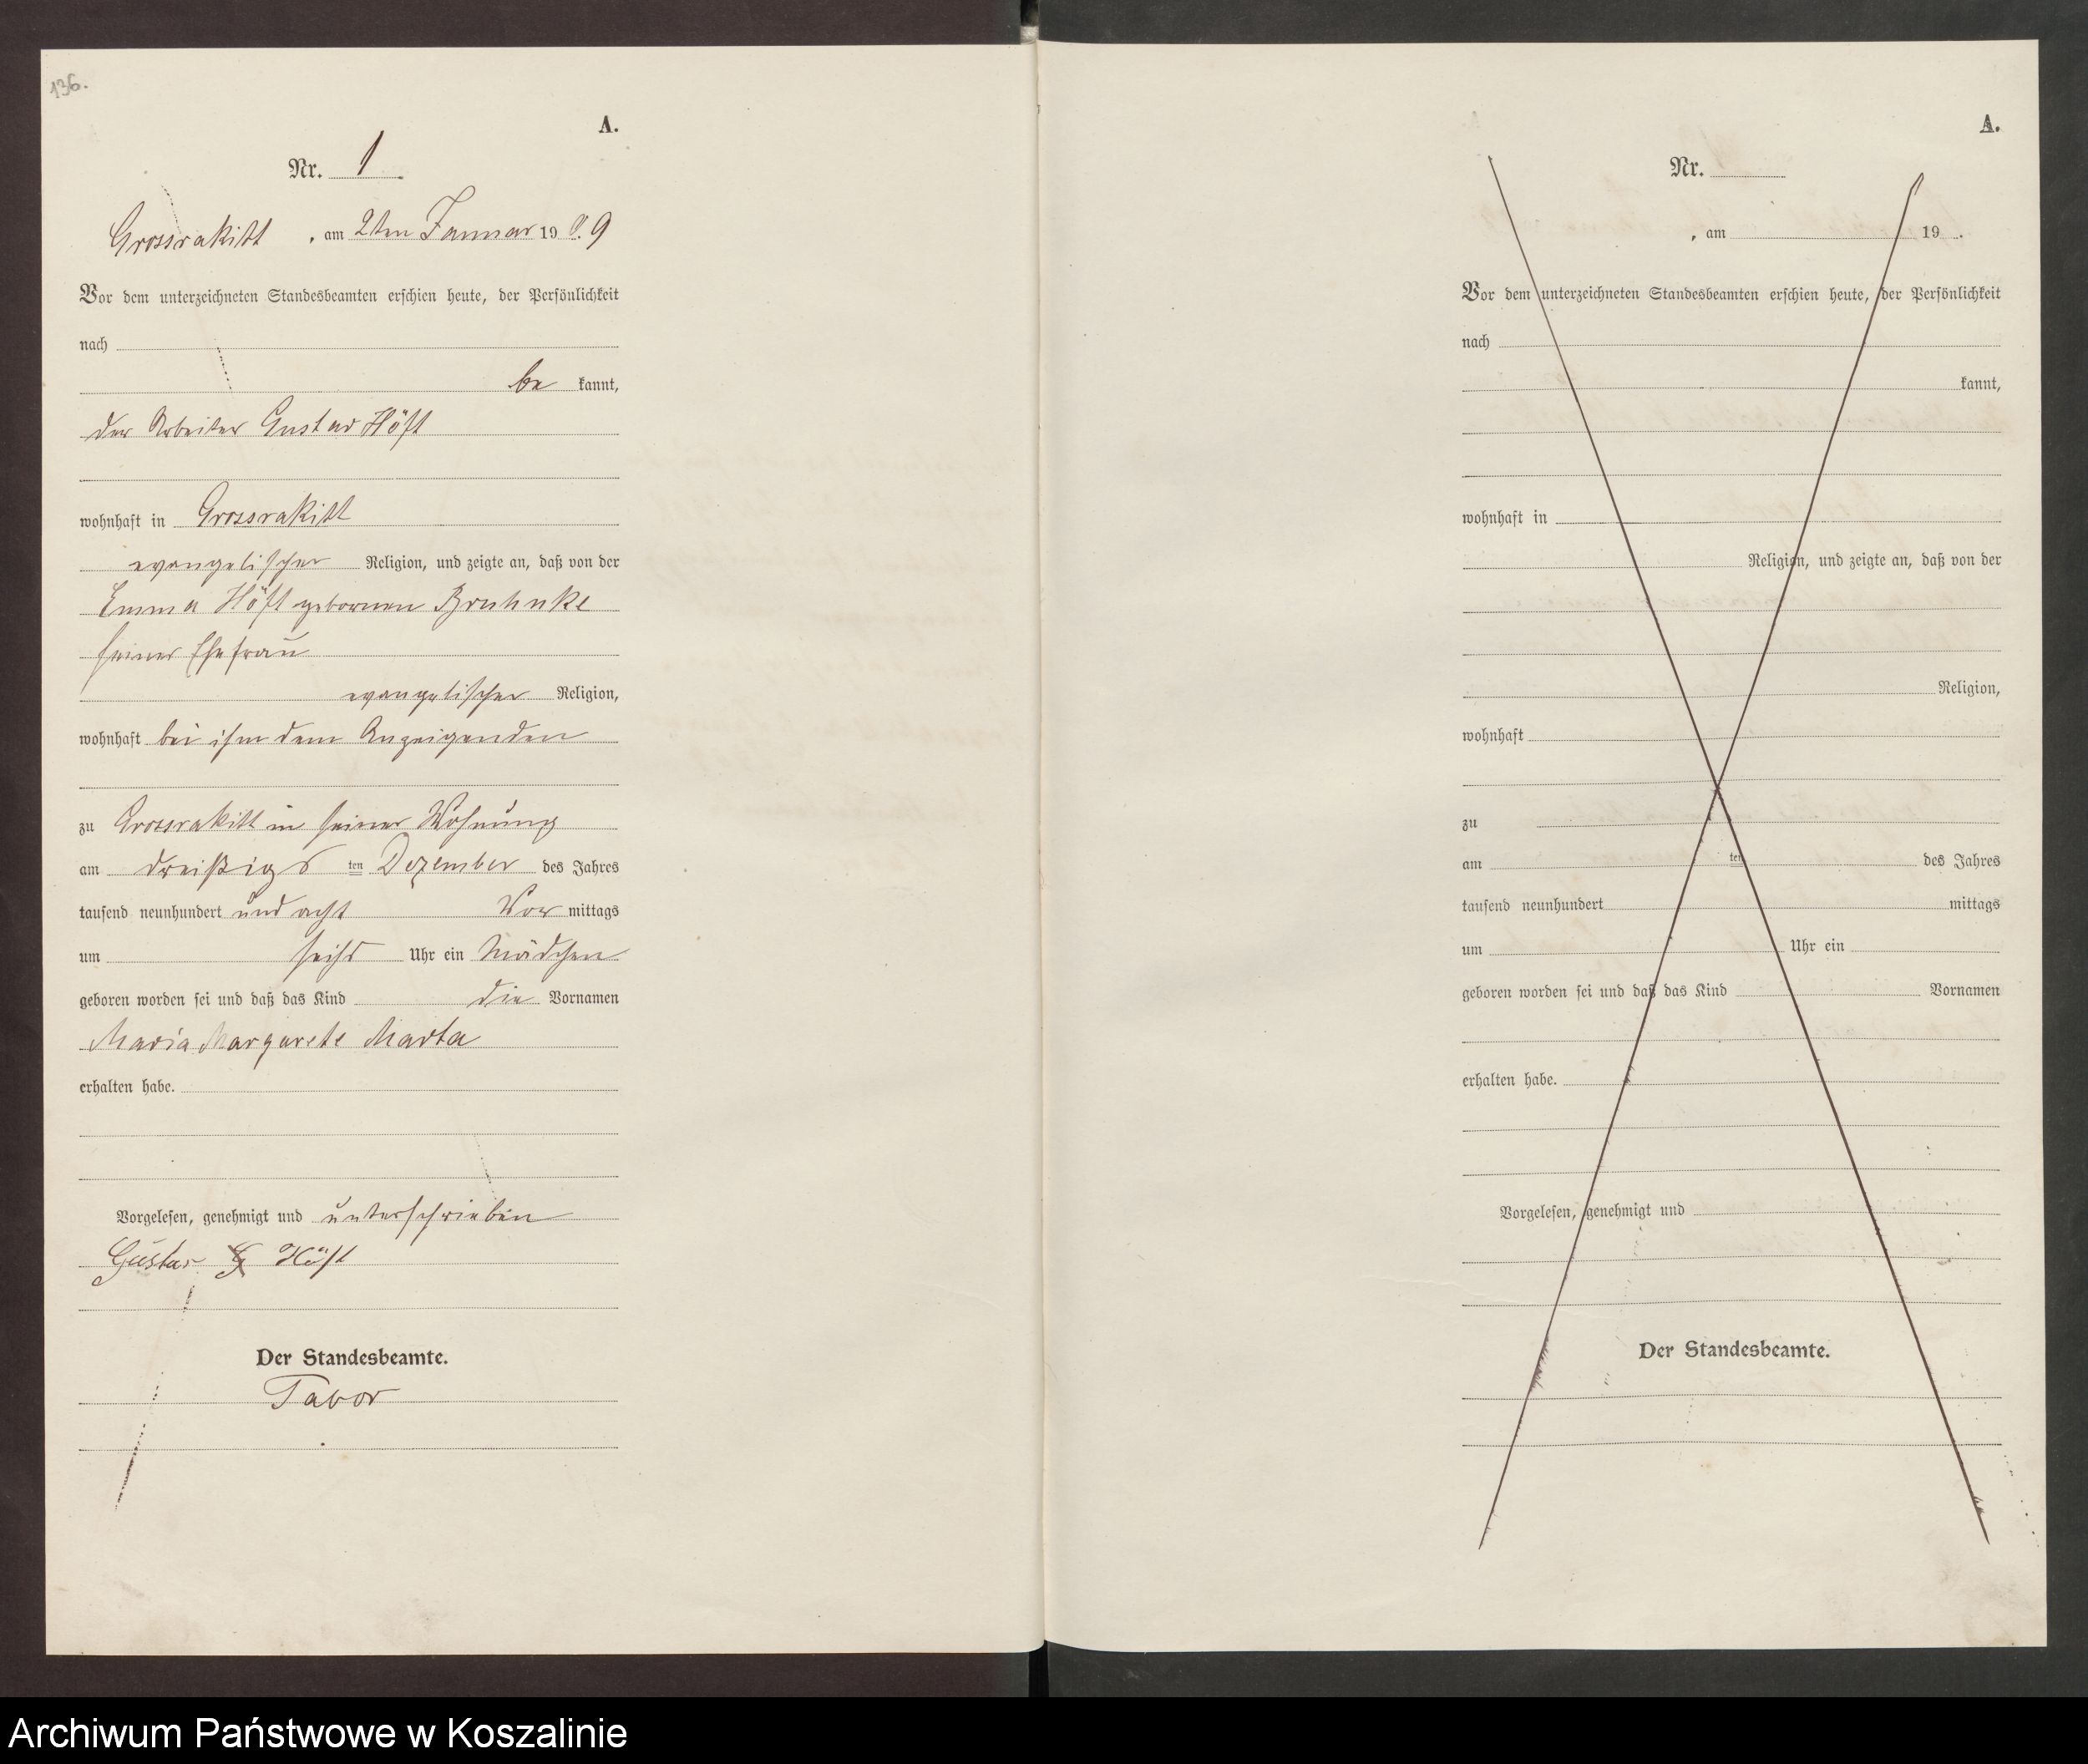 136.
A.
Nr. 1
Grossrakitt, am 2ten Januar 1909
Vor dem unterzeichneten Standesbeamten erschien heute, der Persönlichkeit
nach
be kannt,
der Arbeiter Gustav Höft
wohnhaft in Grossrakitt
evangelischer Religion, und zeigte an, daß von der
Emma Höft gebornen Bruhnke
seiner Ehefrau
evangelischer Religion,
wohnhaft bei ihm dem Anzeigenden
zu Grossrakitt in seiner Wohnung
am dreißigs ten Dezember des Jahres
tausend neunhundert und acht Vor mittags
um sechs Uhr ein Mädchen
geboren worden sei und daß das Kind die Vornamen
Maria Margarete Marta
erhalten habe.
Vorgelesen, genehmigt und unterschrieben
Gustav Höft
Der Standesbeamte.
Tabor
A.
Nr.
, am 19 .
Vor dem unterzeichneten Standesbeamten erschien heute, der Persönlichkeit
nach
kannt,
wohnhaft in
Religion, und zeigte an, daß von der
Religion,
wohnhaft
zu
am ten des Jahres
tausend neunhundert mittags
um Uhr ein
geboren worden sei und daß das Kind Vornamen
erhalten habe.
Vorgelesen, genehmigt und
Der Standesbeamte.
Archiwum Państwowe w Koszalinie